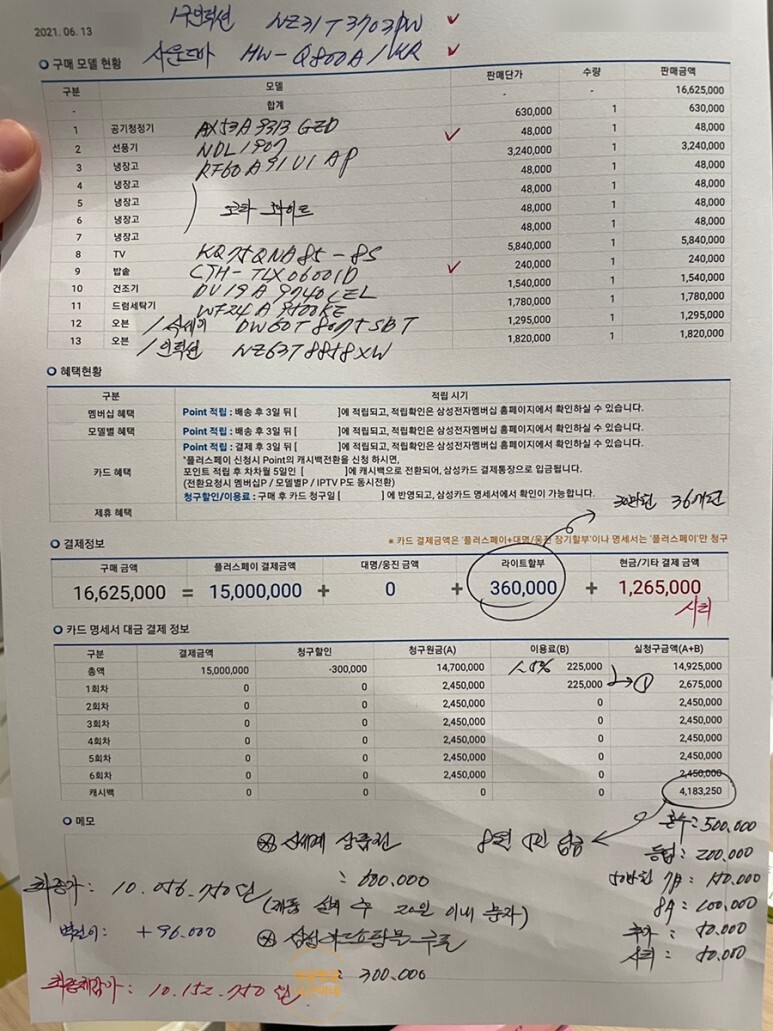 1구인덕션 NZ31T3703PW ✓
2021. 06. 13
사운드바 HW-Q800A/KR ✓
구매 모델 현황
구분 모델 판매단가 수량 판매금액
- 합계 - - 16,625,000
1 공기청정기 AX53A9313GED 630,000 1 630,000
2 선풍기 NDL1907 ✓ 48,000 1 48,000
3 냉장고 RF60A91U1AP 3,240,000 1 3,240,000
4 냉장고 48,000 1 48,000
5 냉장고 코타 화이트 48,000 1 48,000
6 냉장고 48,000 1 48,000
7 냉장고 48,000 1 48,000
8 TV KQ75QNA85-85 5,840,000 1 5,840,000
9 밥솥 CJH-TLX0600ID ✓ 240,000 1 240,000
10 건조기 DV19A9740CEL 1,540,000 1 1,540,000
11 드럼세탁기 WF24A9500KE 1,780,000 1 1,780,000
12 오븐 /식세기 DW60T8075SBT 1,295,000 1 1,295,000
13 오븐 /인덕션 NZ63T8858XW 1,820,000 1 1,820,000
혜택현황
구분 적립 시기
멤버십 혜택 Point 적립 : 배송 후 3일 뒤 [ ]에 적립되고, 적립확인은 삼성전자멤버십 홈페이지에서 확인하실 수 있습니다.
모델별 혜택 Point 적립 : 배송 후 3일 뒤 [ ]에 적립되고, 적립확인은 삼성전자멤버십 홈페이지에서 확인하실 수 있습니다.
Point 적립 : 결제 후 3일 뒤 [ ]에 적립되고, 적립확인은 삼성전자멤버십 홈페이지에서 확인하실 수 있습니다.
*플러스페이 신청시 Point의 캐시백전환을 신청 하시면,
카드 혜택 포인트 적립 후 차차월 5일인 [ ]에 캐시백으로 전환되어, 삼성카드 결제통장으로 입금됩니다.
(전환요청시 멤버십P / 모델별P / IPTV P도 동시전환)
청구할인/이용료 : 구매 후 카드 청구일 [ ]에 반영되고, 삼성카드 명세서에서 확인이 가능합니다.
제휴 혜택
30만원 36개월
결제정보
* 카드 결제금액은 '플러스페이+대명/웅진 장기할부'이나 명세서는 '플러스페이'만 청구
구매 금액 플러스페이 결제금액 대명/웅진 금액 라이트할부 현금/기타 결제 금액
16,625,000 = 15,000,000 + 0 + 360,000 + 1,265,000
시리
카드 명세서 대금 결제 정보
구분 결제금액 청구할인 청구원금(A) 이용료(B) 실청구금액(A+B)
총액 15,000,000 -300,000 14,700,000 1.5% 225,000 14,925,000
1회차 0 0 2,450,000 225,000 → ① 2,675,000
2회차 0 0 2,450,000 0 2,450,000
3회차 0 0 2,450,000 0 2,450,000
4회차 0 0 2,450,000 0 2,450,000
5회차 0 0 2,450,000 0 2,450,000
6회차 0 0 2,450,000 0 2,450,000
캐시백 0 0 0 0 4,183,250
메모
혼수: 500,000
※ 신세계 상품권 8월 5일 입금
등급: 200,000
: 600,000
최종가: 10.056.750원
(제품 설치 후 20일 이내 문자)
추가: 50,000
벽걸이: +96.000
시리: 50,000
: 300.000
최종체감가: 10.152.750원